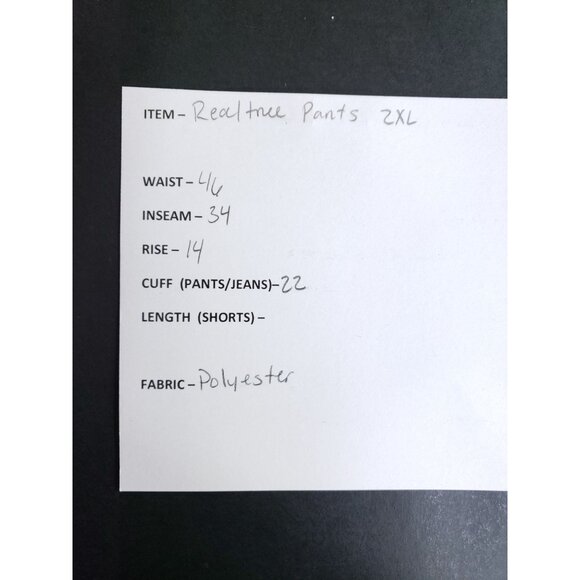 ITEM – Realtree Pants 2XL
WAIST – 46
INSEAM – 34
RISE – 14
CUFF (PANTS/JEANS)– 22
LENGTH (SHORTS) –
FABRIC – Polyester